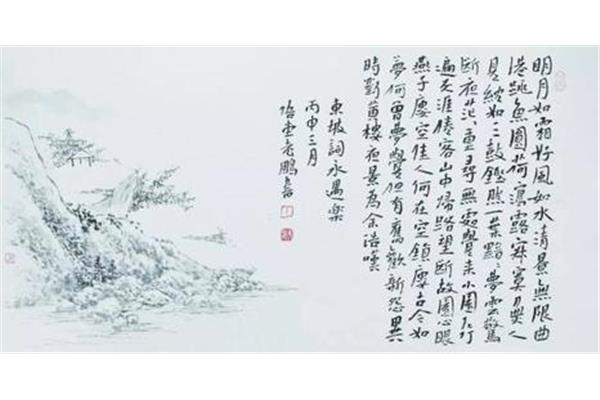 明月如霜好風如水清景無限曲
港跳魚圓荷瀉露寂寞無人
見紞如三鼓鏗然一葉黯黯夢雲驚
斷夜茫茫重尋無處覺來小園行
遍天涯倦客山中歸路望斷故園心眼
燕子樓空佳人何在空鎖樓古今如
夢何曾夢覺但有舊歡新怨異
時對黃樓夜景為余浩嘆
東坡詞永遇樂
丙申三月